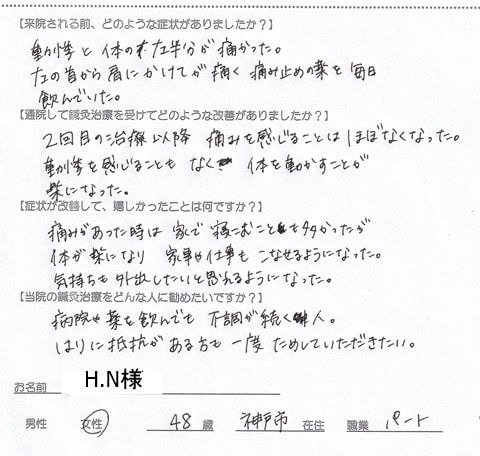 【来院される前、どのような症状がありましたか？】
動悸と体の左半分が痛かった。
左の首から肩にかけてが痛く 痛み止めの薬を毎日
飲んでいた。
【通院して鍼灸治療を受けてどのような改善がありましたか？】
2回目の治療以降 痛みを感じることはほぼなくなった。
動悸を感じることもなく 体を動かすことが
楽になった。
【症状が改善して、嬉しかったことは何ですか？】
痛みがあった時は家で寝こむことも多かったが
体が楽になり 家事や仕事もこなせるようになった。
気持ちも外出したいと思えるようになった。
【当院の鍼灸治療をどんな人に勧めたいですか？】
病院や薬を飲んでも不調が続く人。
はりに抵抗がある方も一度ためしていただきたい。
お名前 H.N様
男性 女性 48 歳 神戸市 在住 職業 パート